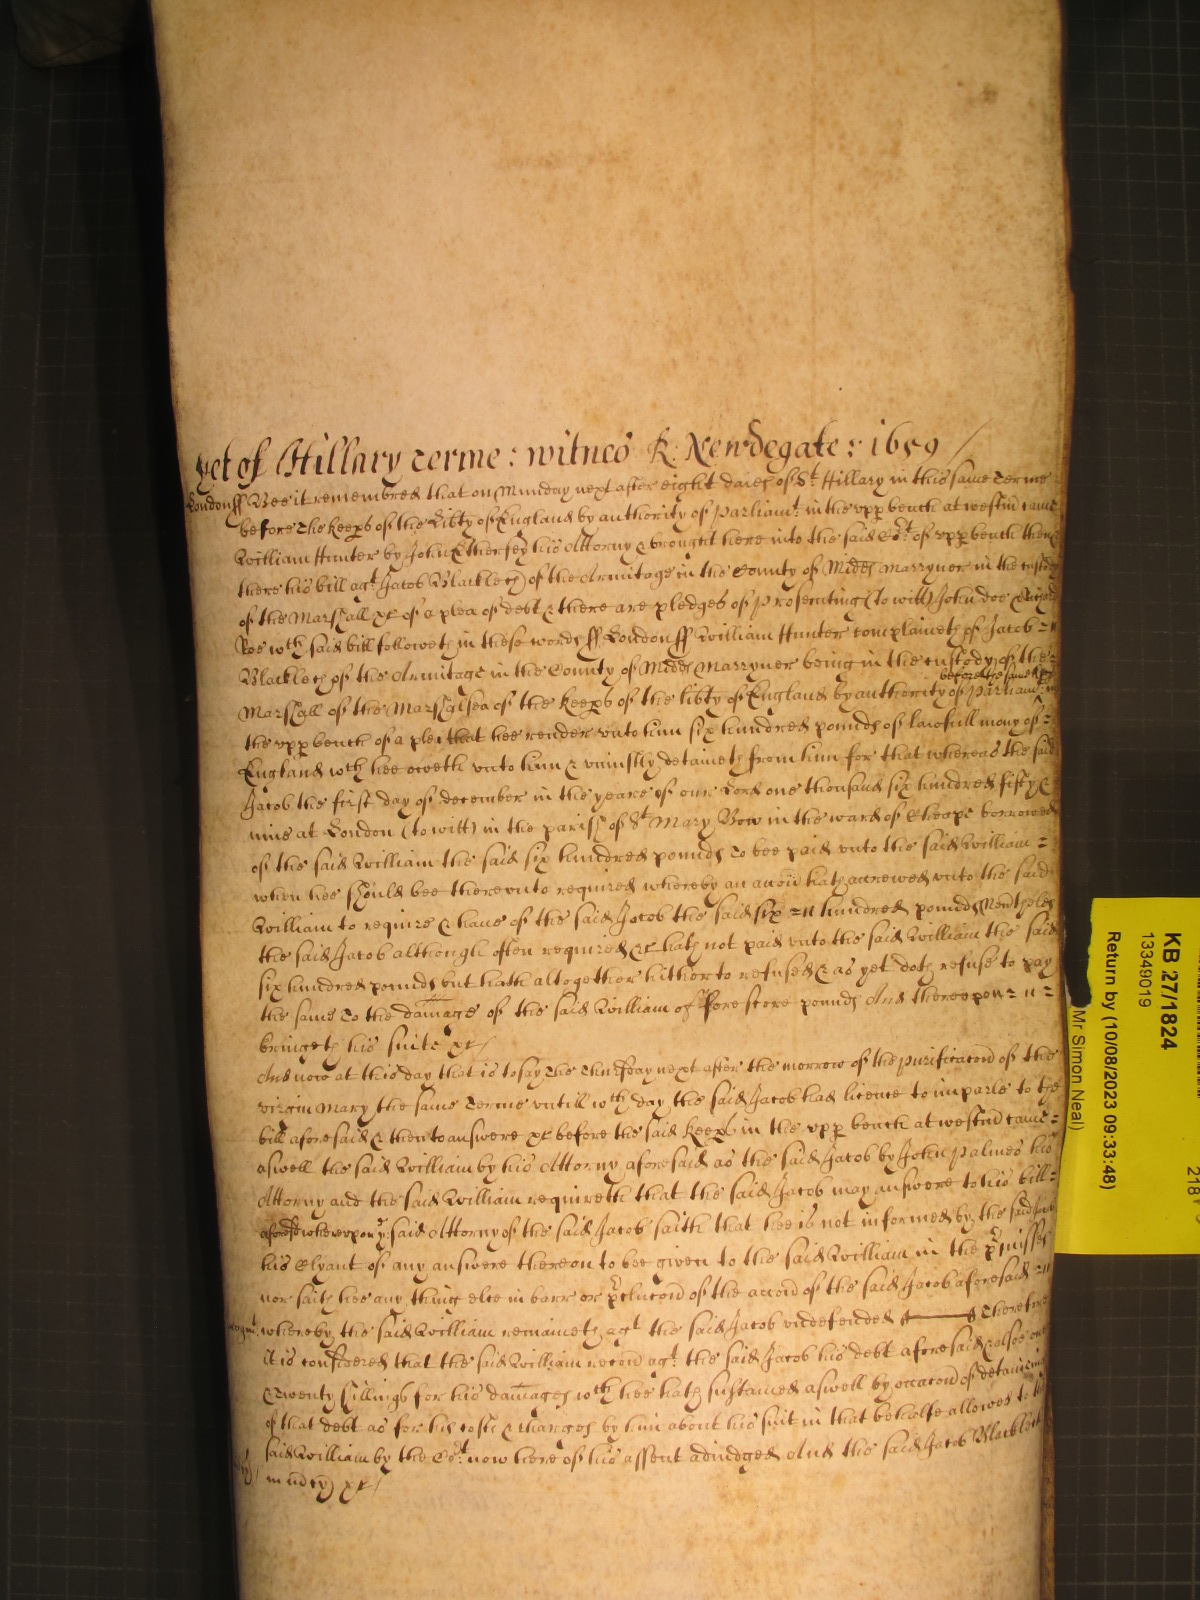 yet of Hillary terme : witnes R: Newdegate : 1659
Londonff Bee it remembred that on Munday next after eight daies of St. Hillary in this same terme
before the Keeps of the Libty of England by authority of Parliamt. in the vpp bench at westm came
William Hunter by John Thersey his Attorny & brought here into the said Cort. of vpp bench then &
there his bill agt. Jacob Blackleech of the Armitage in the County of Midds Marryner in the custody
of the Marshall &c of a plea of debt & there are pledges of prosecuting (to witt) John doe & Richard
Roe wch said bill followeth in these words ff Londonff William Hunter complaineth of Jacob
Blackleech of the Armitage in the County of Midds Marryner being in the custody of the
before the same Keeps
Marshall of the Marshalsea of the Keeps of the libty of England by authority of Parliamt. in
the vpp bench of a plea that hee render vnto him six hundred pounds of lawfull mony of
England wch hee oweth vnto him & viniustly detaineth from him for that whereas the said
Jacob the first day of december in the yeare of our Lord one thousand six hundred fifty &
nine at London (to witt) in the parish of St Mary Bow in the ward of Cheape borrowed
of the said William the said six hundred pounds to bee paid vnto the said William
when hee should bee therevnto required whereby an accon hath accrewed vnto the said
William to require & haue of the said Jacob the said six hundred pounds Neverthelesse
the said Jacob although often required &c hath not paid vnto the said William the said
six hundred pounds but hath altogether hitherto refused & as yet doth refuse to pay
the same to the damage of the said William of Forescore pounds And therevpon
bringeth his suite &c
And now at this day that is to say the Thursday next after the morrow of the purificacon of the
virgin Mary the same terme vntill wch day the said Jacob had licence to imparle to the
bill aforesaid & then to answere &c before the said Keeps in the vpp bench at westm came
aswell the said William by his Attorny aforesaid as the said Jacob by John Palmes his
Attorny and the said William requireth that the said Jacob may answere to his bill
aforesd wherevpon ye said Attorny of the said Jacob saith that hee is not informed by the said Jacob
his Clyant of any answere thereon to bee given to the said William in the pmisses
nor saith hee any thing else in barr or pclucon of the accon of the said Jacob aforesaid
whereby the said William remaineth agt the said Jacob vndefended Therefore
it is considered that the said William recou agt. the said Jacob his debt aforesaid & alsoe
twenty sillings for his damages wch hee hath sustained aswell by occacon of detaineing
of that debt as for his costs & charges by him about his suit in that behalfe allowed to the
said William by the Cort. now here of his assent adiudged And the said Jacob Blackleech
in mcy &c
KB 27/1824
13349019
Return by (10/08/2023 09:33:48)
Mr Simon Neal)